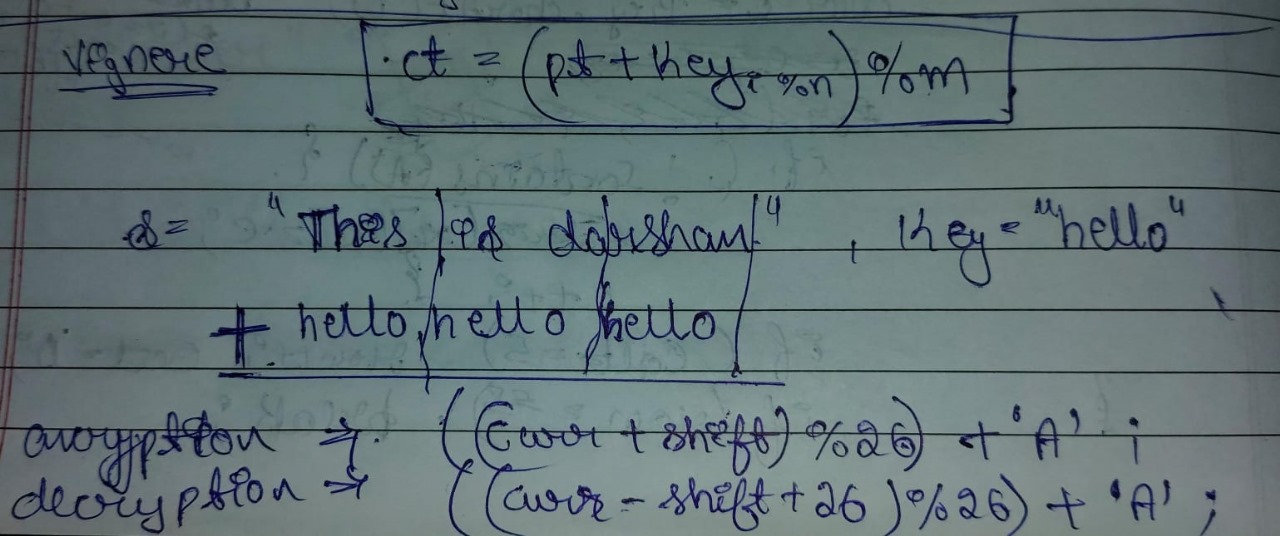 Vignere ct = (pt + key i %n) % m
s = "This is darshan" , key = "hello"
+ hello hello hello
encryption → ((curr + shift) %26) + 'A' ;
decryption → ((curr - shift + 26) %26) + 'A' ;